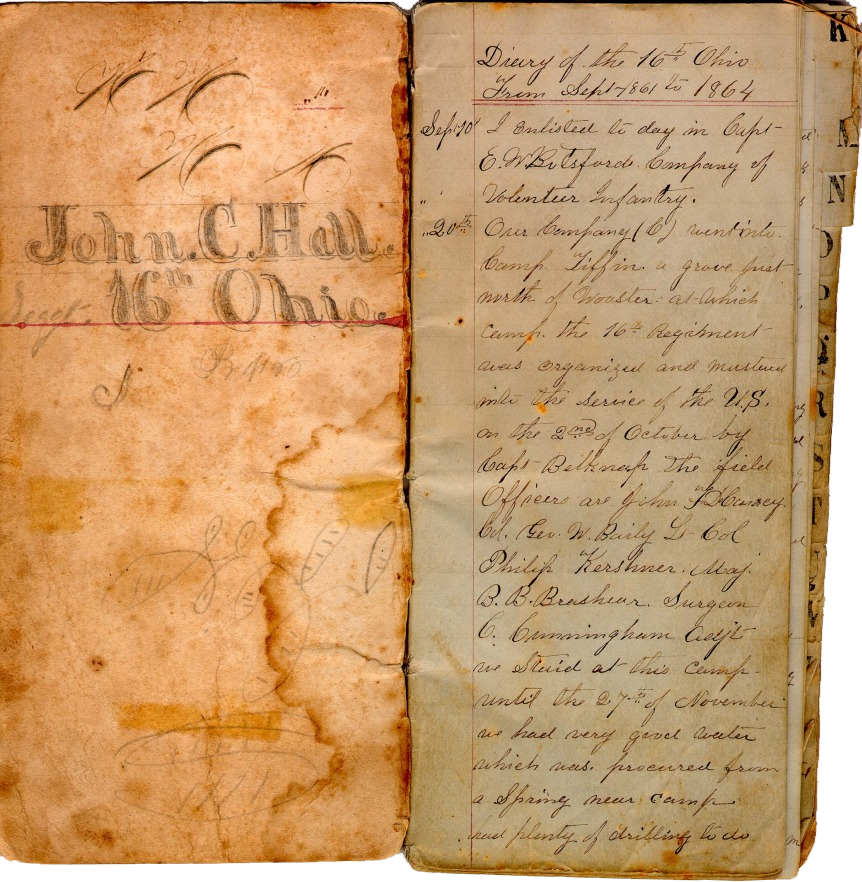 John. C. Hall.
Sergt. 16th Ohio.
Diary of the 16th Ohio
From Sept 1861 to 1864
Sept 10th I enlisted to day in Capt
E. W. Botsfords Company of
Volenteer Infantry.
" 20th Our Company (C) went into
Camp Tiffin. a grove just
north of Wooster. at which
camp. the 16th Regiment
was organized and mustered
into the service of the U.S.
on the 2nd of October by
Capt Belknap the field
Officers are John Courcey.
Col. Geo. W. Baily Lt Col
Philip Kershner. Maj.
B. B. Brashear. Surgeon
C. Cunningham Adjt
we Staid at this camp
until the 27th of November
we had very good water
which was. procured from
a Spring near camp
had plenty of drilling to do
K
M
N
O
P
R
S
T